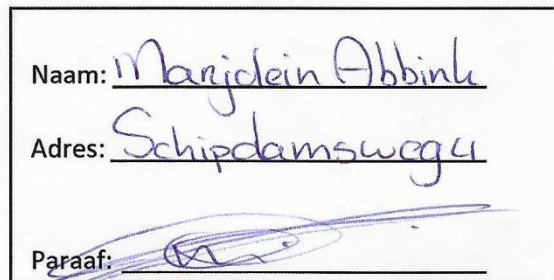 Naam: Marjolein Abbink
Adres: Schipdamsweg 4
Paraaf: